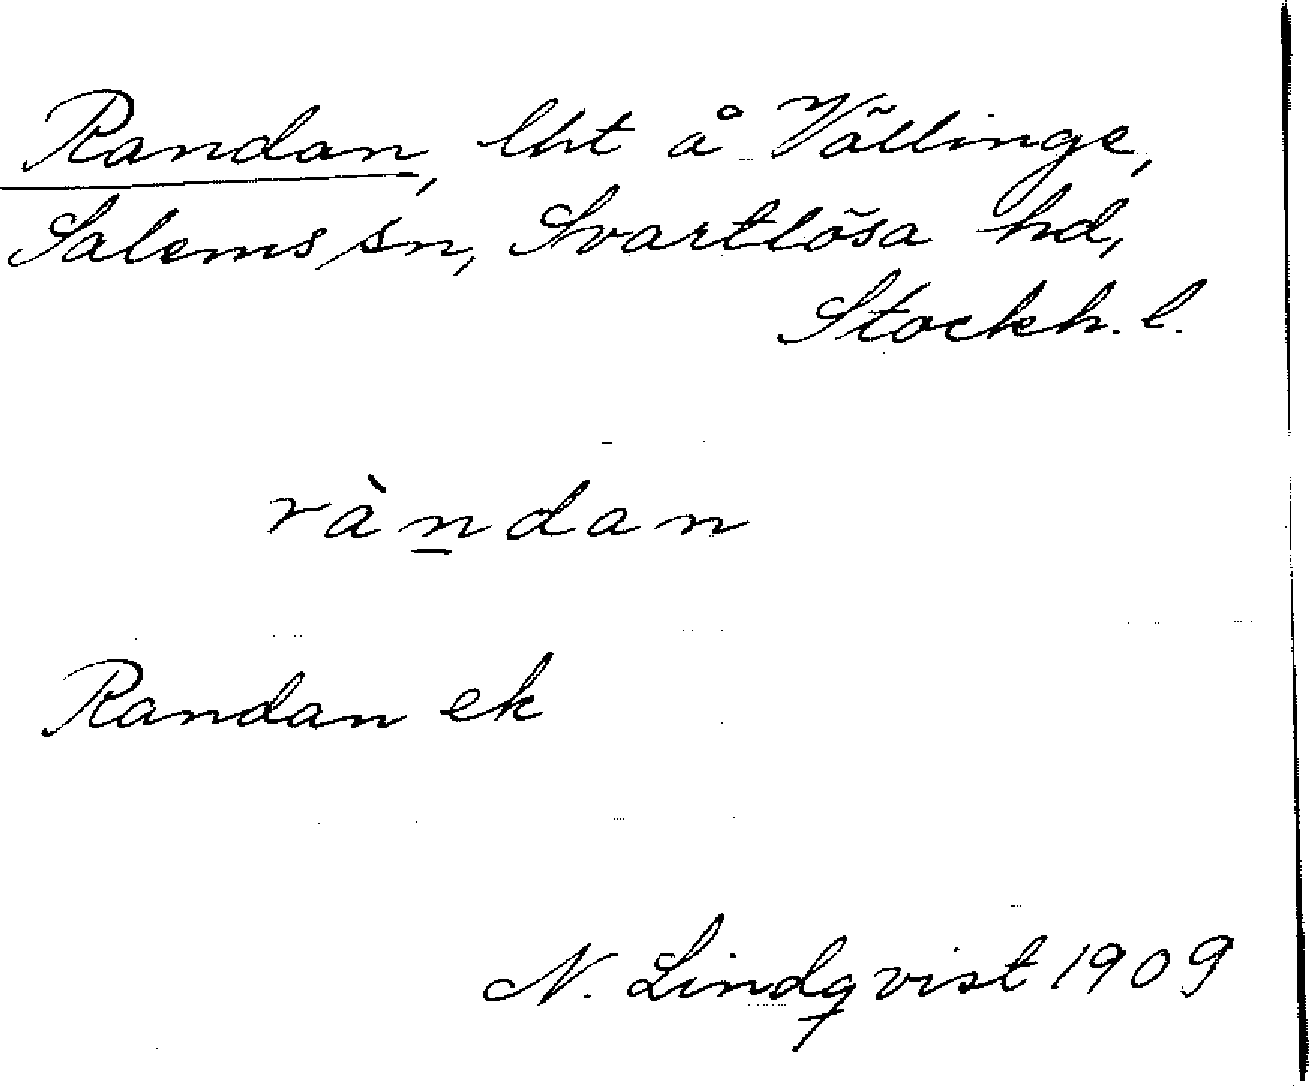 Randan, lht å Vällinge,
Salems sn, Svartlösa hd,
Stockh. l.
ràn̲dan
Randan ek
N. Lindqvist 1909